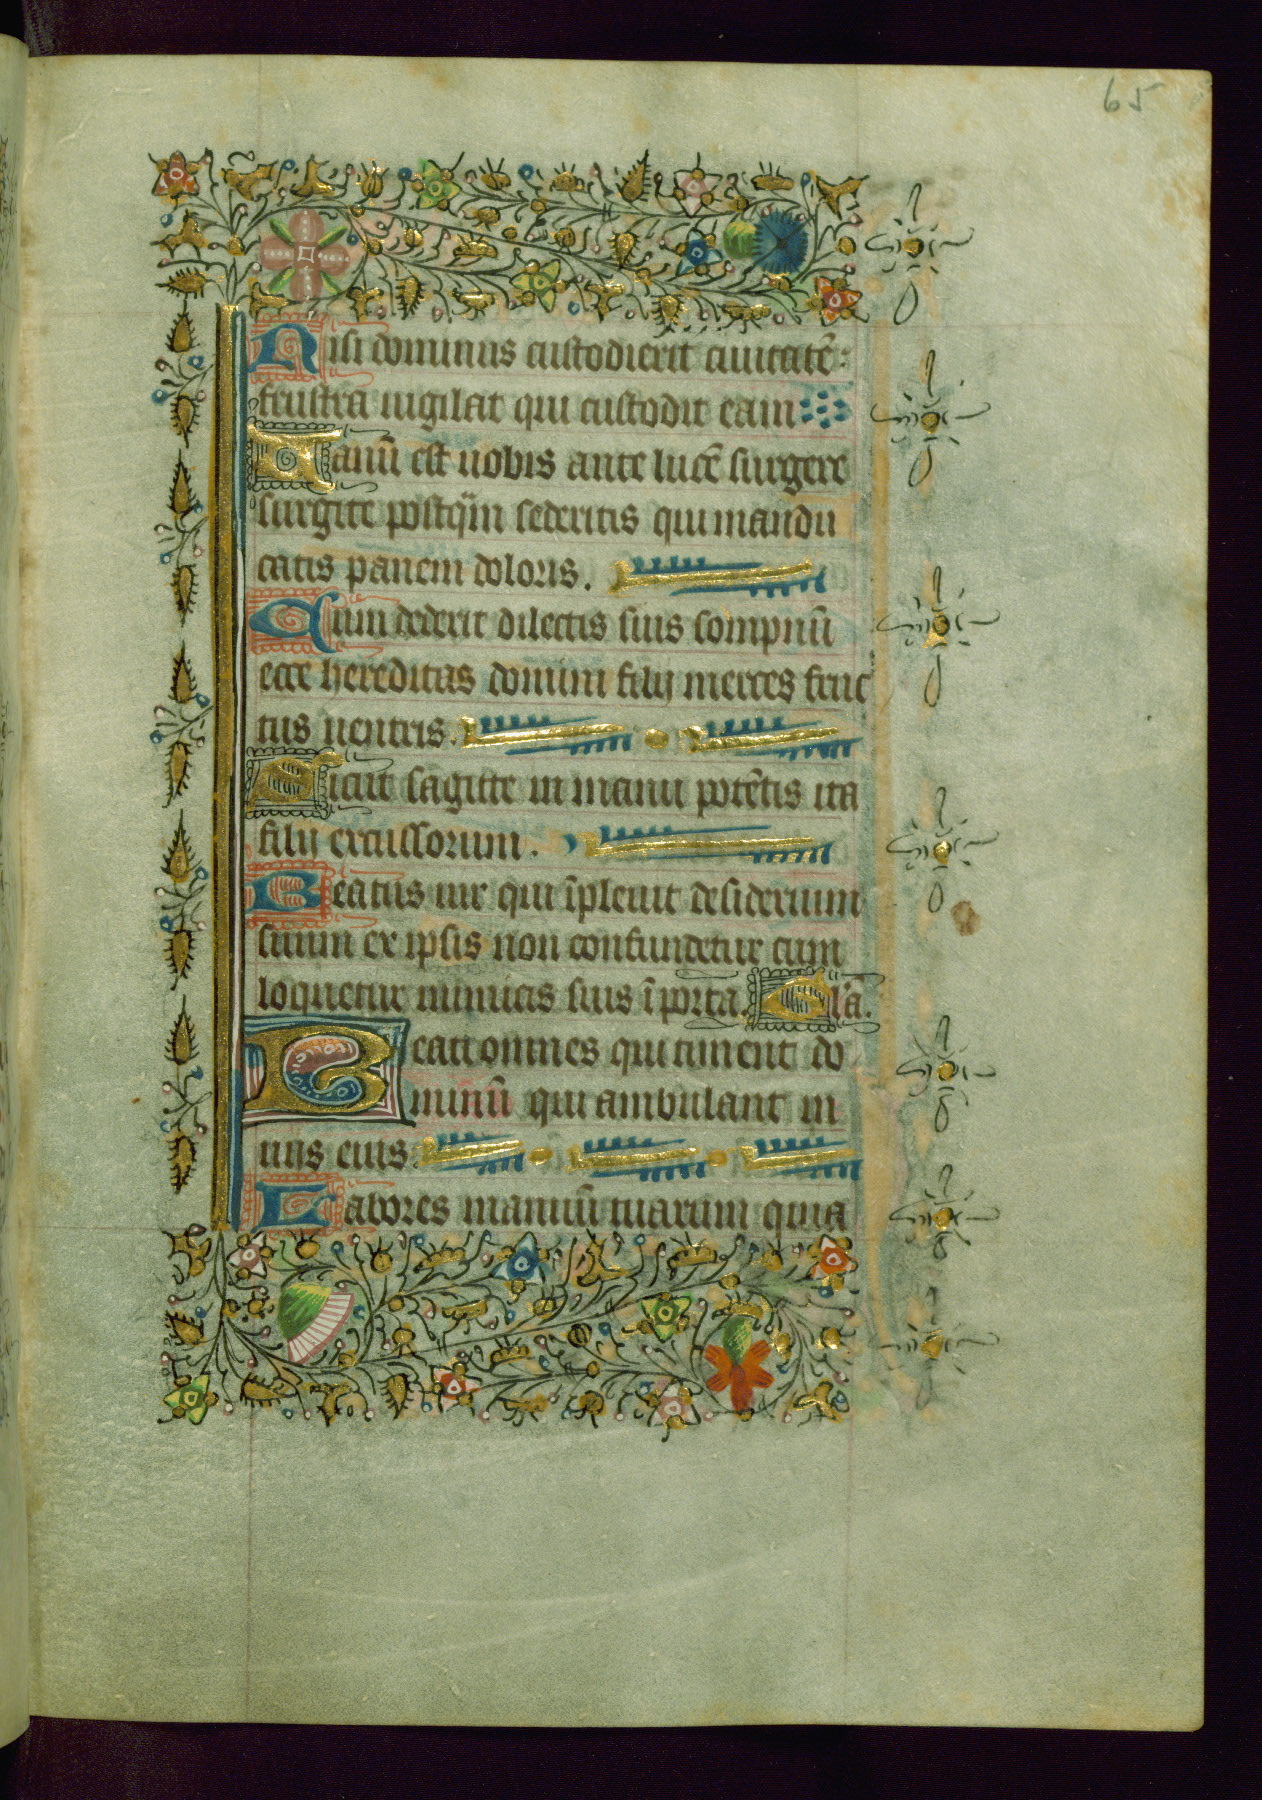 65
Nisi dominus custodierit ciuitatē:
frustra uigilat qui custodit eam
Uanū est uobis ante lucē surgere
surgite postq̄m sederitis qui mandu
catis panem doloris.
Cum dederit dilectis suis sompnū
ecce hereditas domini filij merces fruc
tus uentris.
Sicut sagitte in manu potētis ita
filij excussorum.
Beatus uir qui īpleuit desiderium
suum ex ipsis non confundetur cum
loquetur inimicis suis ī porta. Glā.
Beati omnes qui timent do
minū qui ambulant in
uiis eius.
Labores manuū tuarum quia